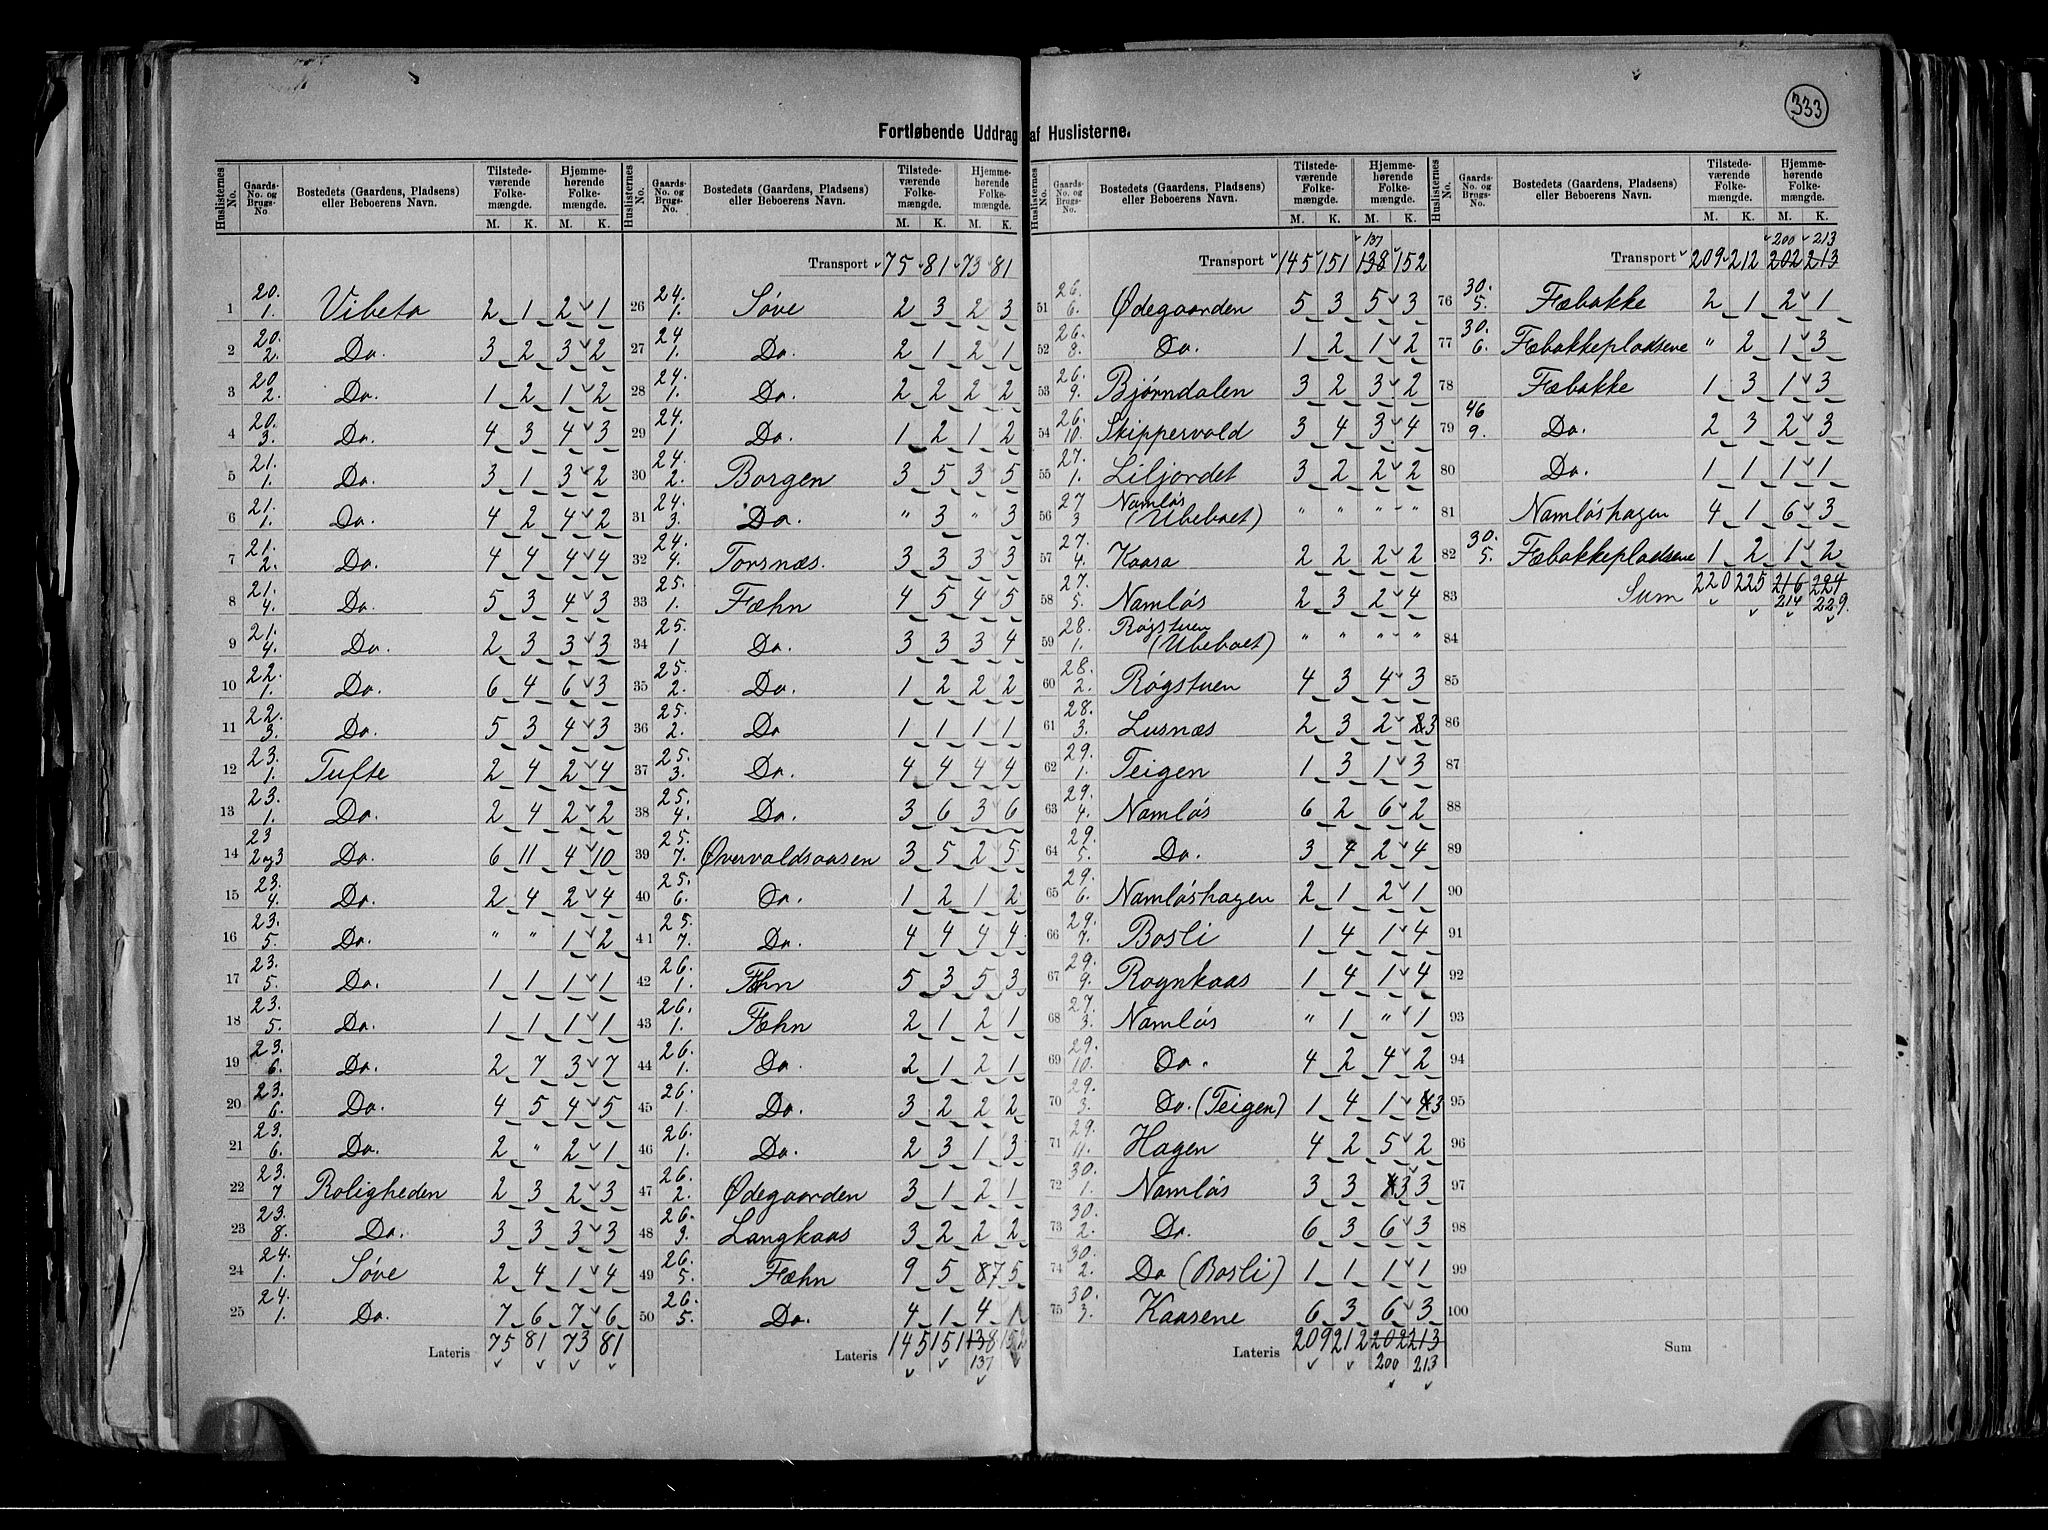 333
Fortløbende Uddrag af Huslisterne.
Huslisternes No. | Gaards-No. og Brugs-No. | Bostedets (Gaardens, Pladsens) eller Beboerens Navn. | Tilstedeværende Folkemængde. M. K. | Hjemmehørende Folkemængde. M. K.
1 20. 1. Vibeto 2 1 2 1
2 20. 2. Do. 3 2 3 2
3 20 2. Do. 1 2 1 2
4 20 3. Do. 4 3 4 3
5 21. 1. Do. 3 1 3 2
6 21. 1. Do. 4 2 4 2
7 21. 2. Do. 4 4 4 4
8 21. 4. Do. 5 3 4 3
9 21. 4. Do. 2 3 3 3
10 22. 1. Do. 6 4 6 3
11 22. 3. Do. 5 3 4 3
12 23. 1. Tufte 2 4 2 4
13 23. 1. Do. 2 4 2 2
14 23 2og3 Do. 6 11 4 10
15 23. 4. Do. 2 4 2 4
16 23. 5. Do. " " 1 2
17 23. 5. Do. 1 1 1 1
18 23. 5. Do. 1 1 1 1
19 23. 6. Do. 2 7 3 7
20 23. 6. Do. 4 5 4 5
21 23. 6. Do. 2 " 2 1
22 23. 7 Roligheden 2 3 2 3
23 23. 8. Do. 3 3 3 3
24 24. 1. Søve 2 4 1 4
25 24. 1. Do. 7 6 7 6
Lateris 75 81 73 81
Huslisternes No. | Gaards-No. og Brugs-No. | Bostedets (Gaardens, Pladsens) eller Beboerens Navn. | Tilstedeværende Folkemængde. M. K. | Hjemmehørende Folkemængde. M. K.
Transport 75 81 73 81
26 24. 1. Søve 2 3 2 3
27 24 1. Do. 2 1 2 1
28 24. 1. Do. 2 2 2 2
29 24. 1 Do. 1 2 1 2
30 24. 2. Borgen 3 5 3 5
31 24. 3. Do. " 3 " 3
32 24. 4. Torsnæs. 3 3 3 3
33 25. 1. Fæhn 4 5 4 5
34 25. 1 Do. 3 3 3 4
35 25. 2. Do. 1 2 2 2
36 25. 2. Do 1 1 1 1
37 25. 3. Do. 4 4 4 4
38 25. 4. Do. 3 6 3 6
39 25. 7. Øvervoldsaasen 3 5 2 5
40 25. 6. Do. 1 2 1 2
41 25. 7. Do. 4 4 4 4
42 26. 1. Fæhn 5 3 5 3
43 26. 1. Fæhn 2 1 2 1
44 26. 1. Do. 2 1 2 1
45 26. 1. Do. 3 2 2 2
46 26. 1. Do. 2 3 1 3
47 26. 2. Ødegaarden 3 1 2 1
48 26. 3. Langkaas 3 2 2 2
49 26. 5. Fæhn 9 5 8 7 5
50 26. 5. Do. 4 1 4 1
Lateris 145 151 138 152
137
Huslisternes No. | Gaards-No. og Brugs-No. | Bostedets (Gaardens, Pladsens) eller Beboerens Navn. | Tilstedeværende Folkemængde. M. K. | Hjemmehørende Folkemængde. M. K.
137
Transport 145 151 138 152
51 26. 6. Ødegaarden 5 3 5 3
52 26. 8. Do. 1 2 1 2
53 26. 9. Bjørndalen 3 2 3 2
54 26. 10. Skippervold 3 4 3 4
55 27. 1. Liljordet 3 2 2 2
56 27 3 Namløs (Ubeboet) " " " "
57 27. 4. Kaasa 2 2 2 2
58 27. 5. Namløs 2 3 2 4
59 28. 1. Røgstuen (Ubeboet) " " " "
60 28. 2. Røgstuen 4 3 4 3
61 28. 3. Lusnæs 2 3 2 3
62 29. 1. Teigen 1 3 1 3
63 29. 4. Namløs 6 2 6 2
64 29. 5. Do. 3 4 2 4
65 29. 6. Namløshagen 2 1 2 1
66 29. 7. Bosli 1 4 1 4
67 29. 9. Rognkaas 1 4 1 4
68 27. 3. Namløs " 1 " 1
69 29. 10. Do. 4 2 4 2
70 29. 3. Do. (Teigen) 1 4 1 4 3
71 29. 11. Hagen 4 2 5 2
72 30. 1. Namløs 3 3 4 3 3
73 30. 2. Do. 6 3 6 3
74 30. 2. Do (Bosli) 1 1 1 1
75 30. 3. Kaasene 6 3 6 3
Lateris 209 212 202 213
200 213
Huslisternes No. | Gaards-No. og Brugs-No. | Bostedets (Gaardens, Pladsens) eller Beboerens Navn. | Tilstedeværende Folkemængde. M. K. | Hjemmehørende Folkemængde. M. K.
200 213
Transport 209 212 202 213
76 30. 5. Fæbakke 2 1 2 1
77 30. 6. Fæbakkepladsene " 2 1 3
78 Fæbakke 1 3 1 3
79 46 9. Do. 2 3 2 3
80 Do. 1 1 1 1
81 Namløshagen 4 1 6 3
82 30. 5. Fæbakkepladsene 1 2 1 2
83 Sum 220 225 216 224
214 229.
84
85
86
87
88
89
90
91
92
93
94
95
96
97
98
99
100
Sum